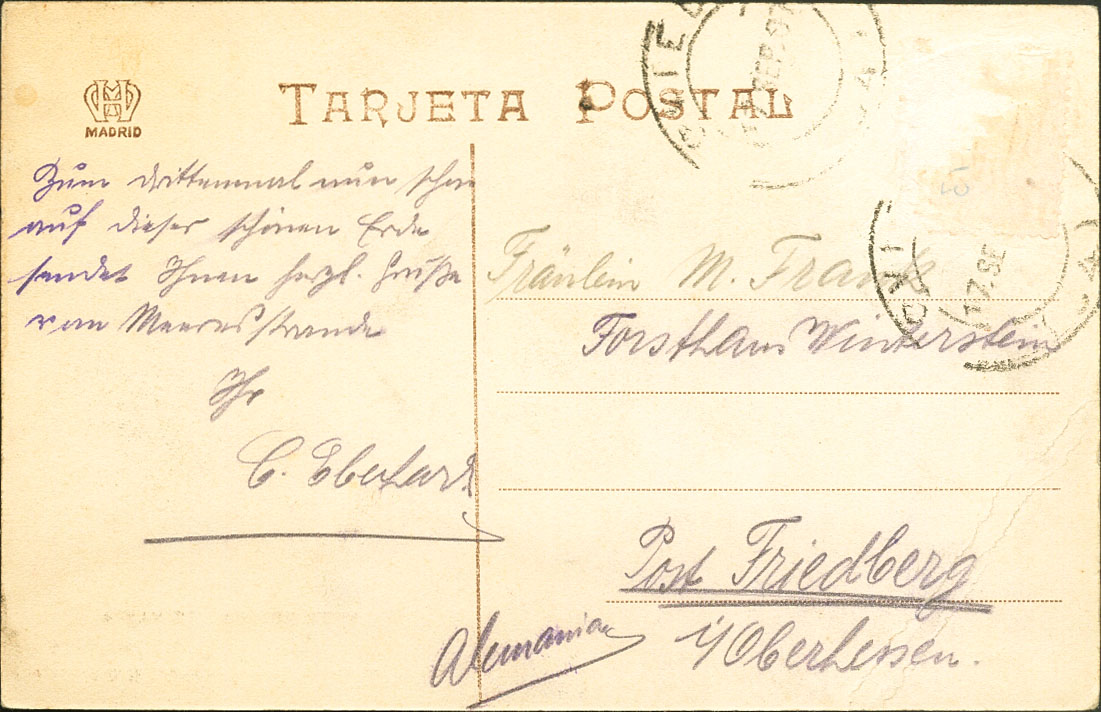 MADRID
TARJETA POSTAL
17. SE
Zum drittenmal nun schon
auf dieser schönen Erde
sendet Ihnen herzl. Grüße
vom Meeresstrande
Ihr
C. Eberhard
Fräulein M. Frank
Forsthaus Winterstein
Post Friedberg
i/Oberhessen.
Alemania